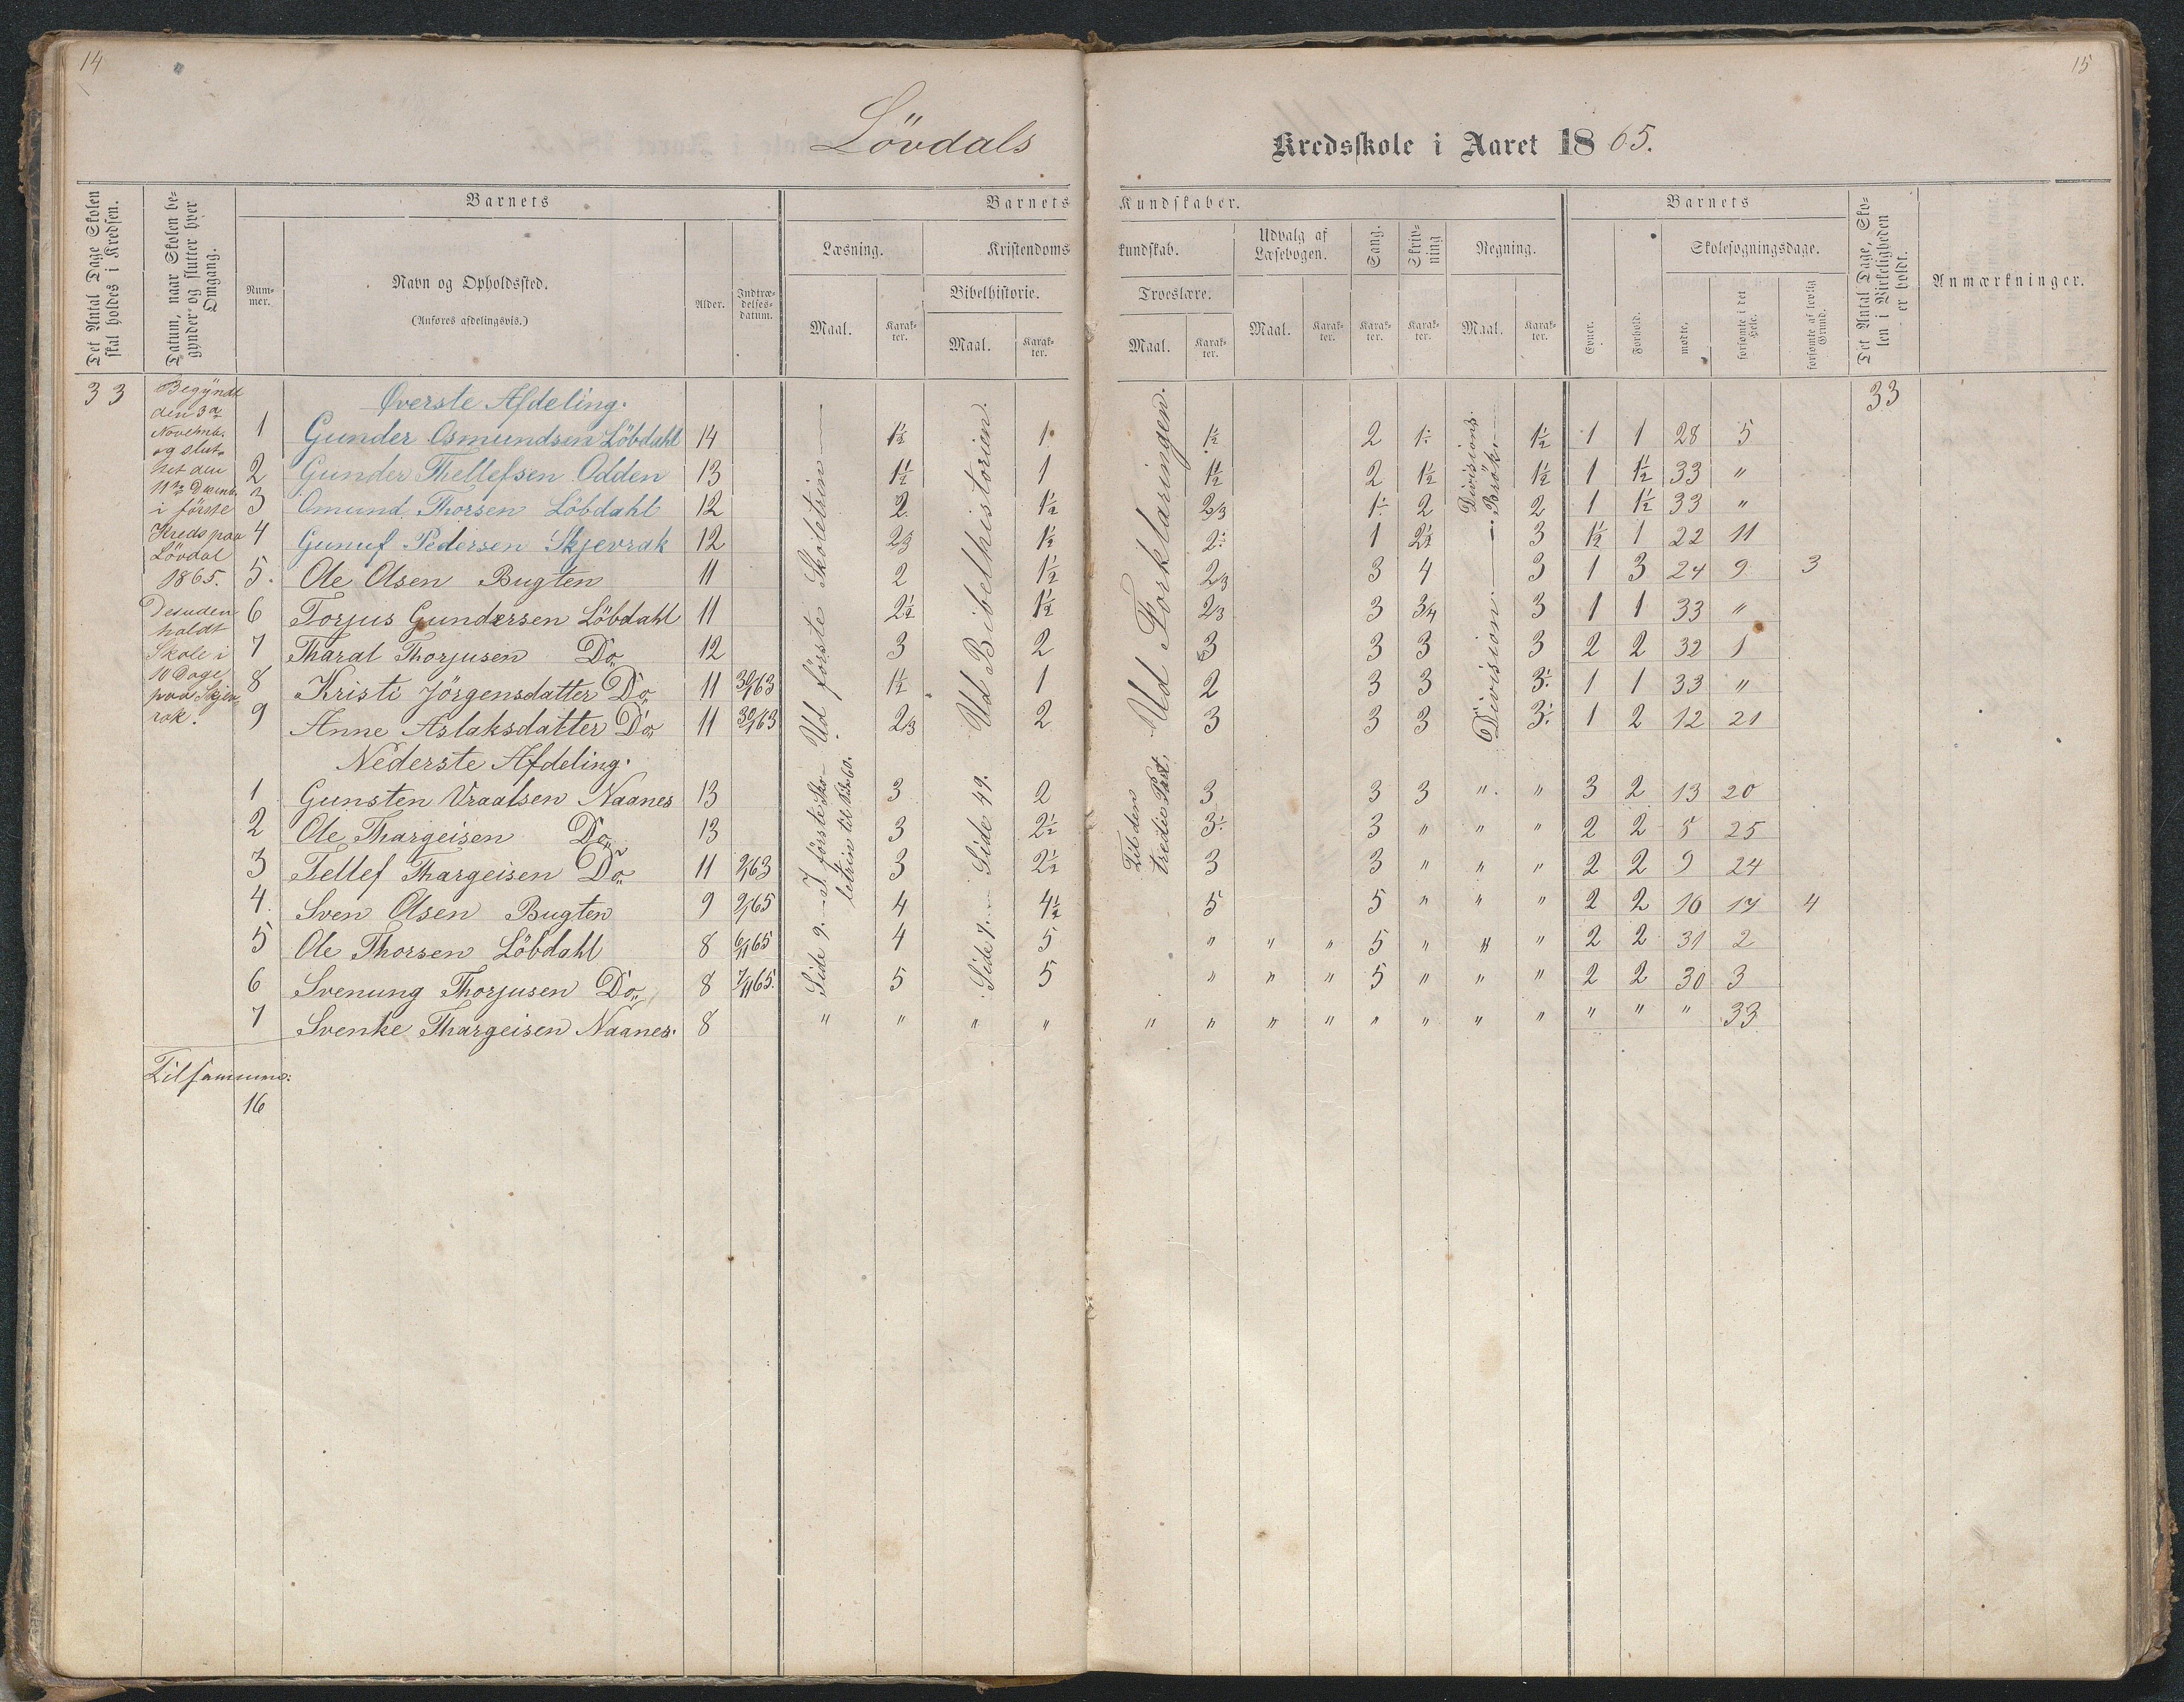 14
15
Lövdals Kredsskole i Aaret 1865.
Det Antal Dage Skolen skal holdes i Kredsen.
Datum, naar Skolen begynder og slutter hver Omgang.
Barnets
Barnets Kundskaber.
Barnets
Det Antal Dage, Skolen i Virkeligheden er holdt.
Anmærkninger.
Nummer.
Navn og Opholdssted.
(Anføres afdelingsvis.)
Alder.
Indtrædelsesdatum.
Læsning.
Kristendomskundskab.
Udvalg af Læsebogen.
Sang.
Skrivning
Regning.
Evner.
Forhold.
Skolesøgningsdage.
Bibelhistorie.
Troeslære.
Maal.
Karakter.
Maal.
Karakter.
Maal.
Karakter.
Maal.
Karakter.
Karakter.
Karakter.
Maal.
Karakter.
mødte.
forsømte i det Hele.
forsømte af lovlig Grund.
33
Begyndt
den 3die
Novemb.
og slut-
tet den
11te Decemb.
i förste
Kreds paa
Lövdal
1865.
Desuden
holdt
Skole i
10 Dage
paa Skjev-
rak.
33
Øverste Afdeling.
1 Gunder Osmundsen Löbdahl 14 1½ 1. 1½ 2 1. 1½ 1 1 28 5
2 Gunder Thellefsen Odden 13 1½ 1 1½ 2 1½ 1½ 1 1½ 33 "
3 Omund Thorsen Löbdahl 12 2. 1½ 2/3 1. 2 2 1 1½ 33 "
4 Gunuf Pedersen Skjevrak 12 2/3 1½ 2. 1 2½ 3 1½ 1 22 11
5. Ole Olsen Bugten 11 2 1½ 2/3 3 4 3 1 3 24 9 3
6 Torjus Gundersen Löbdahl 11 2½ 1½ 2/3 3 3/4 3 1 1 33 "
7 Tharal Thorjusen Do 12 3 2 3 3 3 3 2 2 32 1
8 Kristi Jörgensdatter Do 11 30/1 63 1½ 1 2 3 3 3. 1 1 33 "
9 Anne Aslaksdatter Do 11 30/1 63 2/3 2 3 3 3 3. 1 2 12 21
Ud förste Skoletrin
Ud Bibelhistorien.
Ud Forklaringen.
Divisions.
Brök.
Division.
Nederste Afdeling.
1 Gunsten Vraalsen Naanes 13 3 2 3 3 3 " " 3 2 13 20
2 Ole Thargeisen Do 13 3 2½ 3. 3 " " " 2 2 8 25
3 Tellef Thargeisen Do 11 2/1 63 3 2½ 3 3 " " " 2 2 9 24
4. Sven Olsen Bugten 9 2/1 65 4 4½ 5 5 " " " 2 2 16 17 4
5 Ole Thorsen Löbdahl 8 6/11 65 4 5 " " " 5 " " " 2 2 31 2
6 Svenung Thorjusen Do 8 7/11 65. 5 5 " " " 5 " " " 2 2 30 3
7 Svenke Thargeisen Naanes. 8 " " " " " " " " " " " " " " " 33
I förste Sko-
letrin til Side 60.
Side 9.
Side 49.
Side 7.
Til den
tredie Part.
Tilsammen:
16